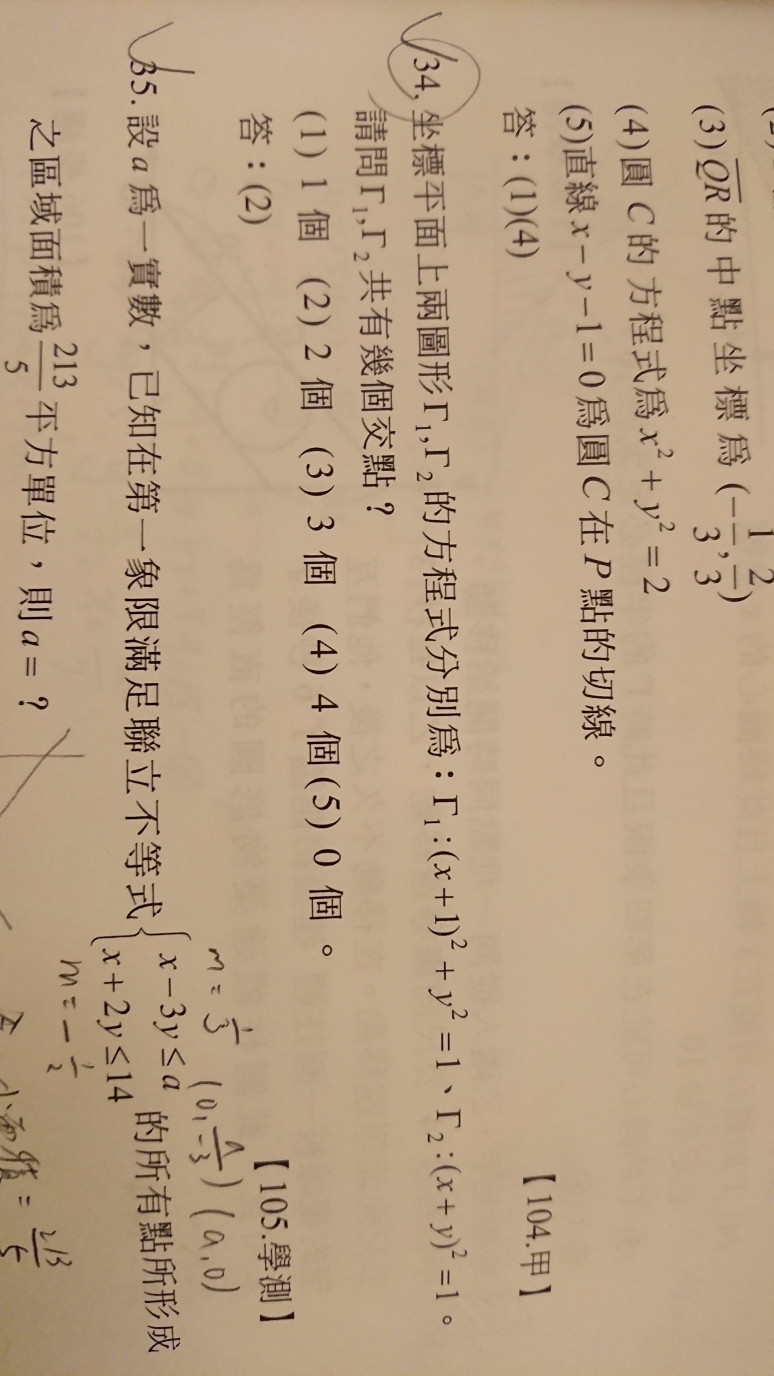 (3) QR 的中點坐標為 (-1/3, 2/3)
(4)圓 C 的方程式為 x² + y² = 2
(5)直線 x − y −1 = 0 為圓 C 在 P 點的切線。
答：(1)(4)
【104.甲】
34. 坐標平面上兩圖形 Γ₁,Γ₂ 的方程式分別為：Γ₁ :(x+1)² + y² =1、Γ₂ :(x+y)² =1。
請問 Γ₁,Γ₂ 共有幾個交點？
(1) 1 個 (2) 2 個 (3) 3 個 (4) 4 個(5) 0 個。
答：(2)
【105.學測】
m = 1/3 (0, a/-3) (a, 0)
35. 設 a 為一實數，已知在第一象限滿足聯立不等式 { x−3y ≤ a
x+2y ≤14 的所有點所形成
m = - 1/2
之區域面積為 213/5 平方單位，則 a = ?
= 213/5